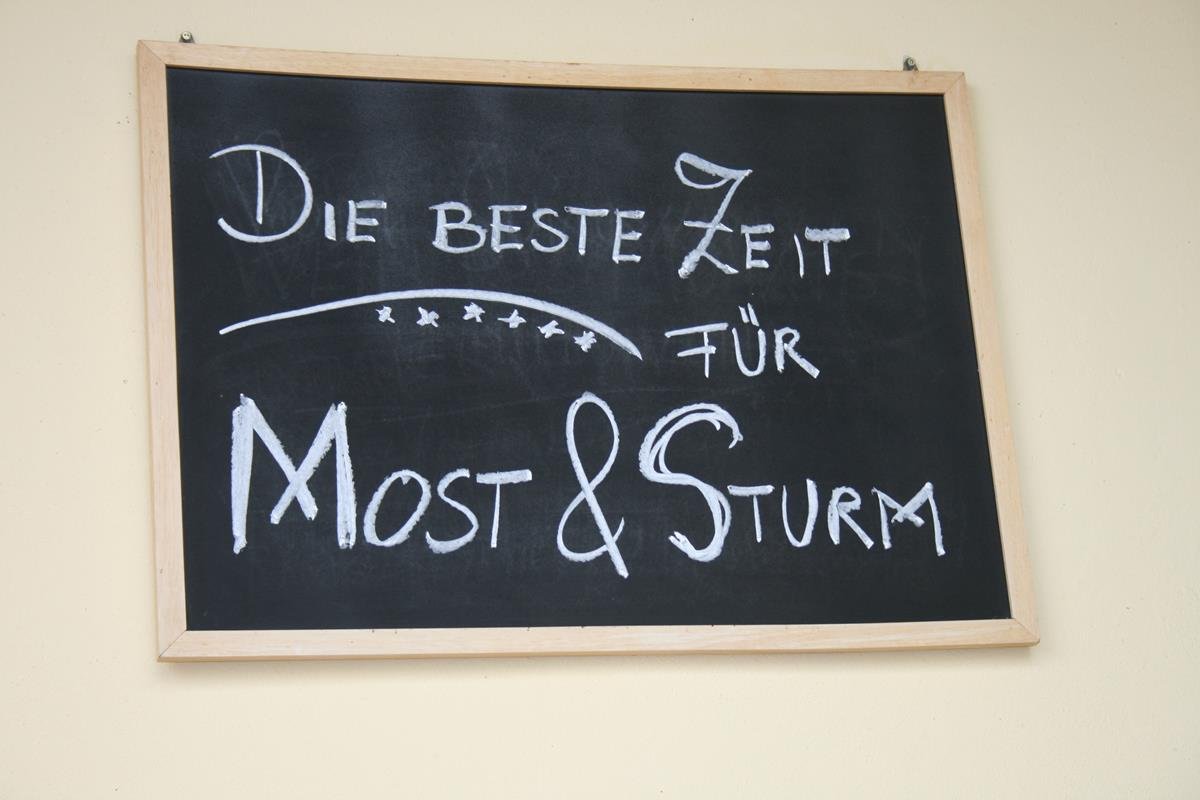 DIE BESTE ZEIT
FÜR
MOST & STURM